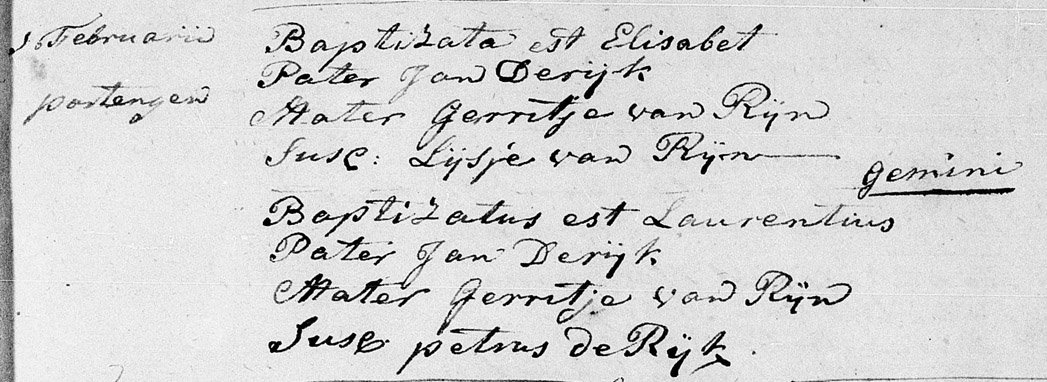 5 Februarii
portengen
Baptizata est Elisabet
Pater Jan Derijk
Mater Gerritje van Rijn
Susc: Lijsje van Rijn
Gemini
Baptizatus est Laurentius
Pater Jan Derijk
Mater Gerritje van Rijn
Susc. petrus de Rijk.